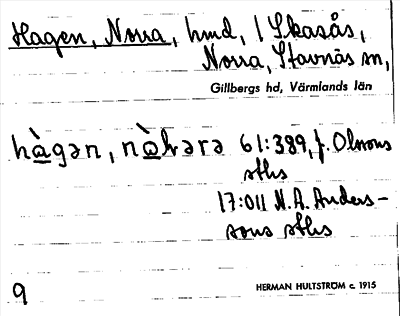 Hagen, Norra, hmd, / Skasås,
Norra, Stavnäs sn,
Gillbergs hd, Värmlands län
hàgən, nòrərə 61:389, J. Olssons
sths
17:011 N. A. Anders-
sons sths
9
HERMAN HULTSTRÖM c. 1915